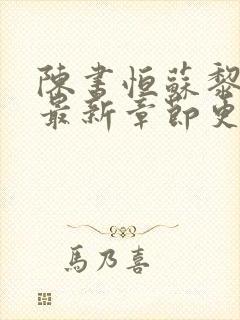 陳書恒蘇黎
最新章節更
馬乃喜